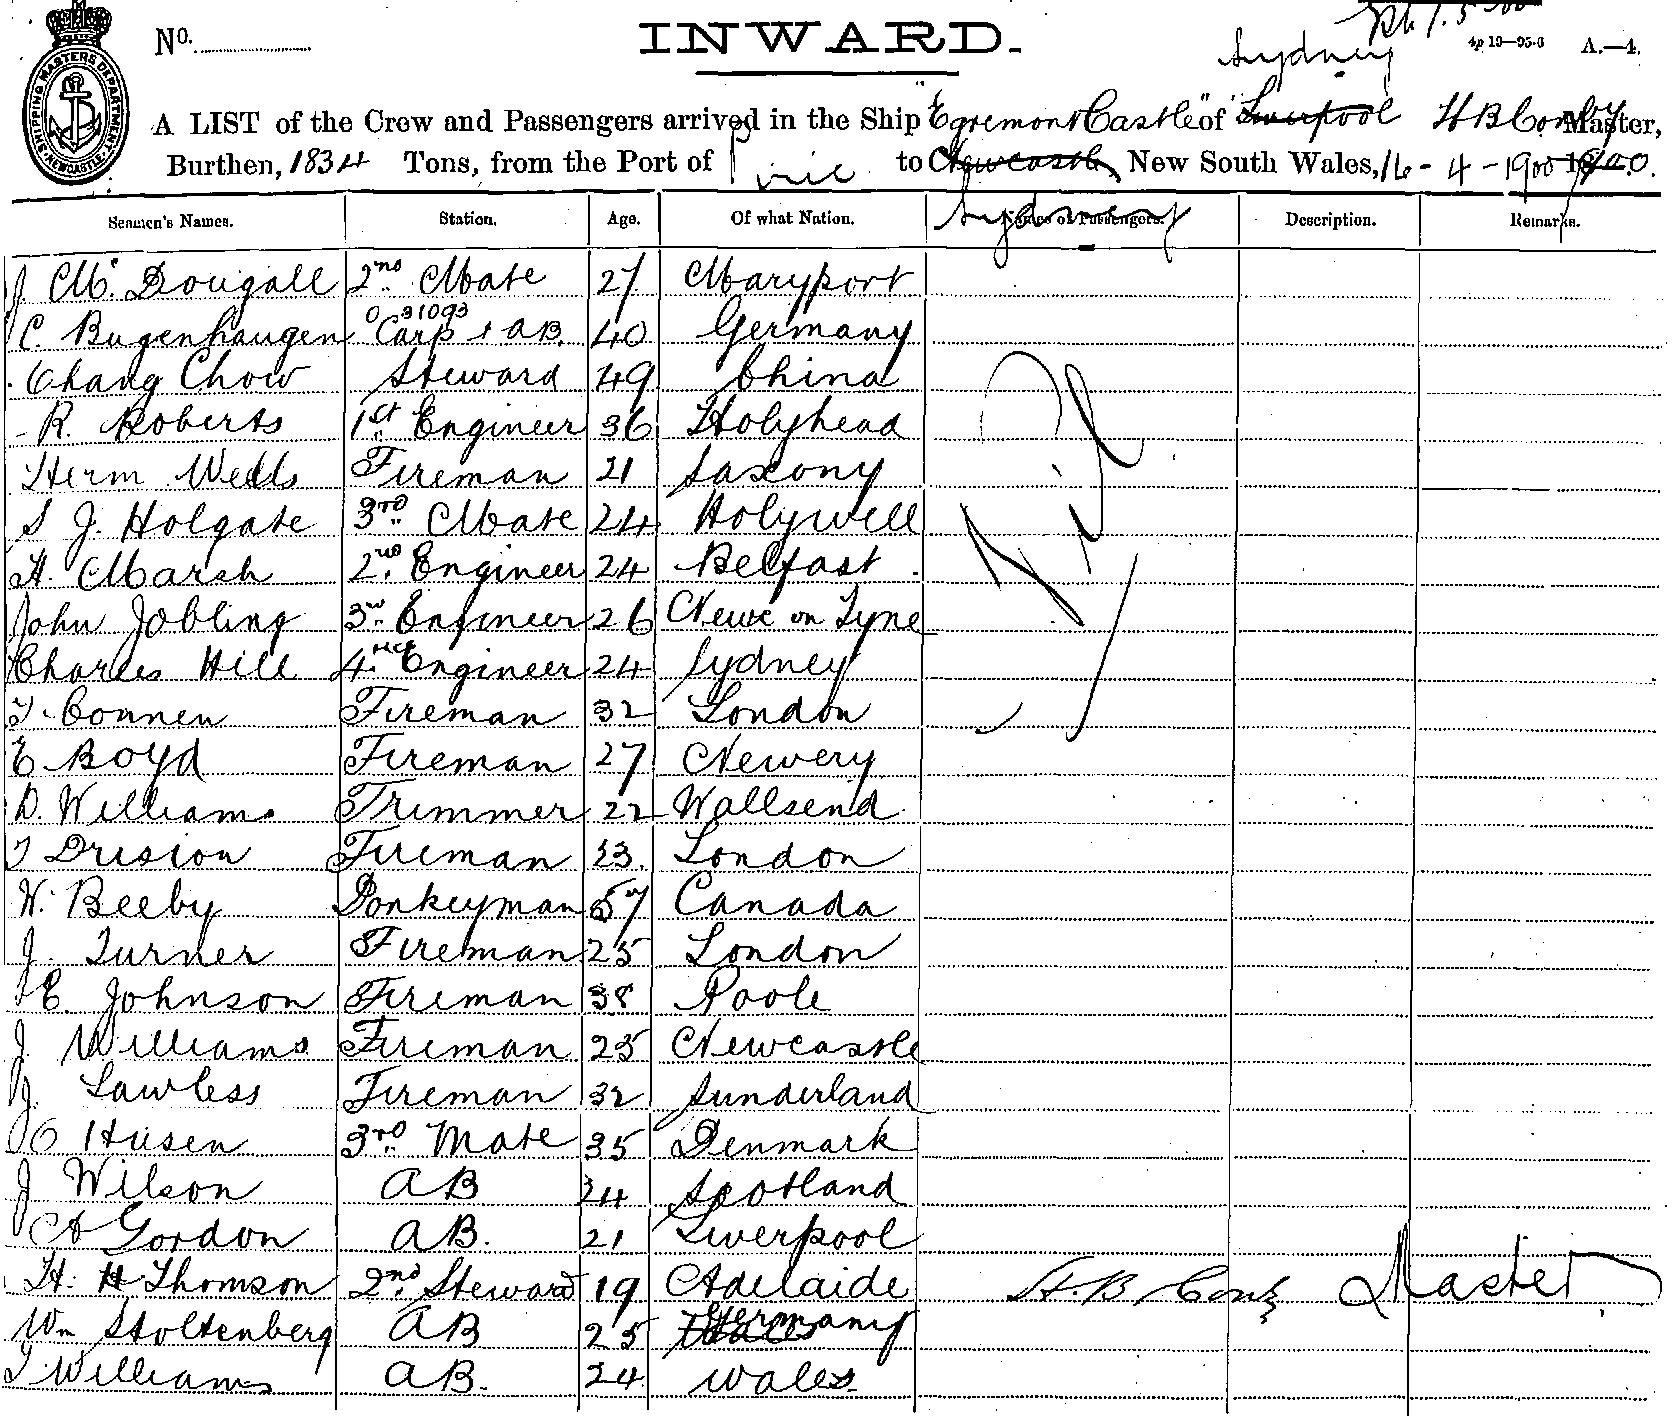 No.
INWARD.
Sydney
4p 19—95-6 A.—4.
SHIPPING MASTERS DEPARTMENT NEWCASTLE
A LIST of the Crew and Passengers arrived in the Ship "Egremont Castle" of Liverpool H B Master,
Burthen, 1834 Tons, from the Port of Pirie to Newcastle, New South Wales, 16 - 4 - 1900
Sydney
Seamen's Names. Station. Age. Of what Nation. Names of Passengers. Description. Remarks.
J. McDougall 2nd Mate 27 Maryport
O 31093
C. Bugenhaugen Carp & AB. 40 Germany
Chang Chow Steward 49 China
R. Roberts 1st Engineer 36 Holyhead
Herm Wells Fireman 21 Saxony
S J. Holgate 3rd Mate 24 Holywell
H. Marsh 2nd Engineer 24 Belfast
John Jobling 3rd Engineer 26 Newc on Tyne
Charles Hill 4th Engineer 24 Sydney
T. Connen Fireman 32 London
E Boyd Fireman 27 Newery
D. Williams Trimmer 22 Wallsend
T Fireman 23. London
W. Beeby Donkeyman 57 Canada
J. Turner Fireman 25 London
E. Johnson Fireman 38 Poole
J. Williams Fireman 25 Newcastle
J. Lawless Fireman 32 Sunderland
O Husen 3rd Mate 35 Denmark
J Wilson AB 24 Scotland
A Gordon AB. 21 Liverpool
H. Thomson 2nd Steward 19 Adelaide H. B Master
Wm Stoltenberg AB 25 Germany
T. Williams AB. 24 Wales.
Nil